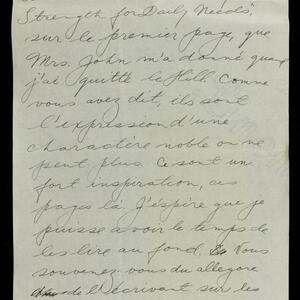 Strength for Daily Needs"
sur le premier page, que
Mrs. John m'a donné quand
j'ai quitté le Hill. Comme
vous avez dit, ils sont
l'expression d'une
charactère noble on ne
peut plus Ce sont un
fort inspiration, ces
pages là. J'espère que je
puisse avoir le temps de
les lire au fond. Vous
souvenez-vous du allegore
de l'écrivant sur les